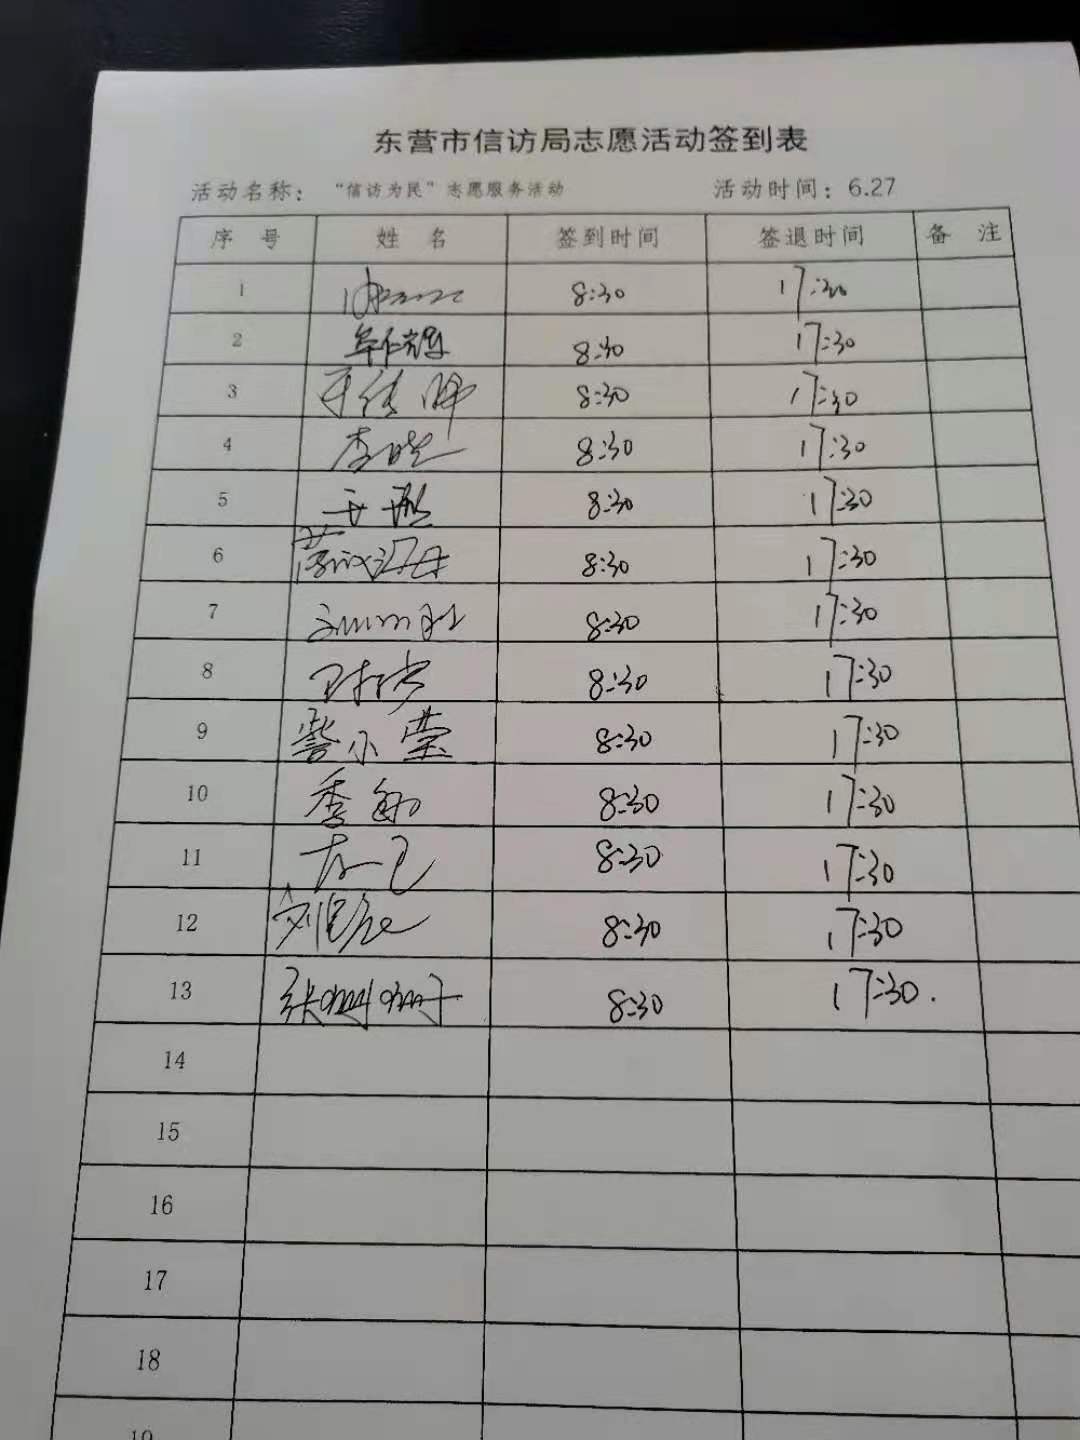 东营市信访局志愿活动签到表
活动名称： “信访为民”志愿服务活动 活动时间：6.27
序 号 姓 名 签到时间 签退时间 备 注
1 8:30 17:30
2 8:30 17:30
3 8:30 17:30
4 李晓 8:30 17:30
5 8:30 17:30
6 8:30 17:30
7 8:30 17:30
8 8:30 17:30
9 訾小莹 8:30 17:30
10 季敏 8:30 17:30
11 8:30 17:30
12 刘 8:30 17:30
13 张 8:30 17:30.
14
15
16
17
18
19